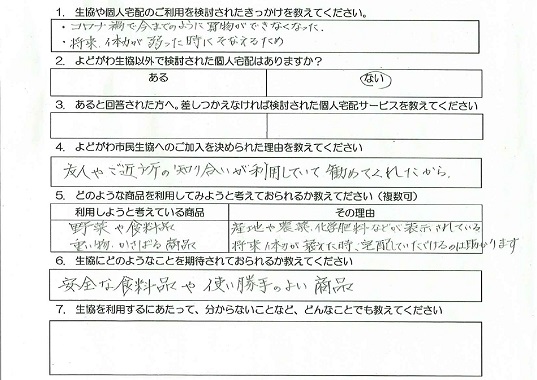 1．生協や個人宅配のご利用を検討されたきっかけを教えてください。
・コロナ禍で今までのように買物ができなくなった.
・将来、体力が弱った時にそなえるため
2．よどがわ生協以外で検討された個人宅配はありますか？
ある ない
3．あると回答された方へ。差しつかえなければ検討された個人宅配サービスを教えてください
4．よどがわ市民生協へのご加入を決められた理由を教えてください
友人やご近所の知り合いが利用していて勧めてくれたから.
5．どのような商品を利用してみようと考えておられるか教えてください（複数可）
利用しようと考えている商品 その理由
野菜や食料品 産地や農薬、化学肥料などが表示されている
重い物、かさばる商品 将来体力が衰えた時、宅配していただけるのは助かります
6．生協にどのようなことを期待されておられるか教えてください
安全な食料品や使い勝手のよい商品
7．生協を利用するにあたって、分からないことなど、どんなことでも教えてください